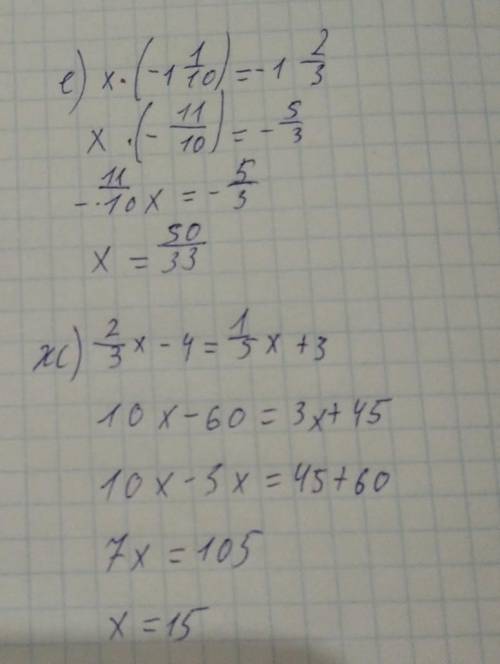 е) x·(-1 1/10) = -1 2/3
x ·(- 11/10) = - 5/3
- 11/10 x = - 5/3
x = 50/33
ж) 2/3 x - 4 = 1/5 x + 3
10x - 60 = 3x + 45
10x - 3x = 45 + 60
7x = 105
x = 15